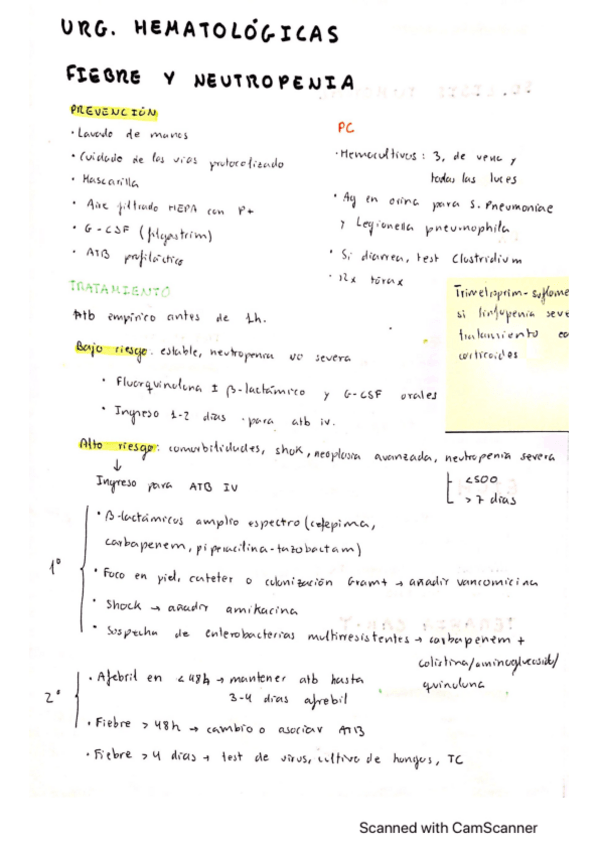 URG. HEMATOLÓGICAS
FIEBRE Y NEUTROPENIA
PREVENCIÓN
· Lavado de manos
· Cuidado de las vías protocolizado
· Mascarilla
· Aire filtrado HEPA con P+
· G-CSF (filgastrim)
· ATB profiláctico
PC
· Hemocultivos: 3, de vena y
todas las luces
· Ag en orina para S. Pneumoniae
y Legionella pneumophila
· Si diarrea, test Clostridium
· Rx tórax
Trimetroprim-sulfome
si linfopenia seve
tratamiento co
corticoides
TRATAMIENTO
Atb empírico antes de 1h.
Bajo riesgo: estable, neutropenia no severa
· Fluorquinolona ± β-lactámico y G-CSF orales
· Ingreso 1-2 días para atb iv.
Alto riesgo: comorbilidades, shok, neoplasia avanzada, neutropenia severa
<500
>7 días
↓
Ingreso para ATB IV
1º
· β-lactámicos amplio espectro (cefepima,
carbapenem, piperacilina-tazobactam)
· Foco en piel, cateter o colonización Gram+ → añadir vancomicina
· Shock → añadir amikacina
· Sospecha de enterobacterias multirresistentes → carbapenem +
colistina/aminoglucosido/
quinolona
2º
· Afebril en <48h → mantener atb hasta
3-4 días afebril
· Fiebre >48h → cambio o asociar ATB
· Fiebre >4 días → test de virus, cultivo de hongos, TC
Scanned with CamScanner